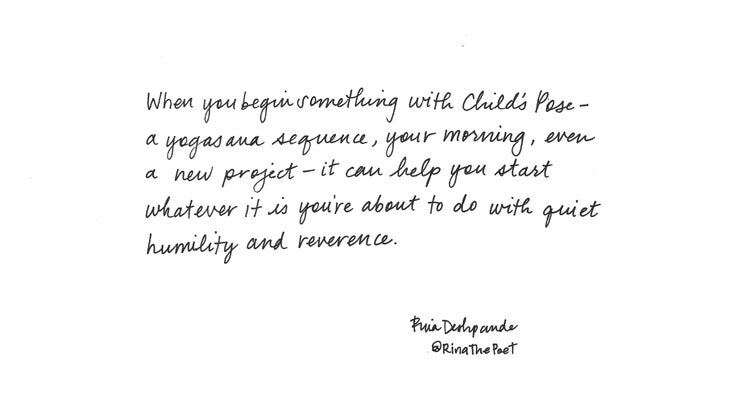 When you begin something with Child's Pose –
a yogasana sequence, your morning, even
a new project – it can help you start
whatever it is you're about to do with quiet
humility and reverence.
Rina Deshpande
@RinaThePoet